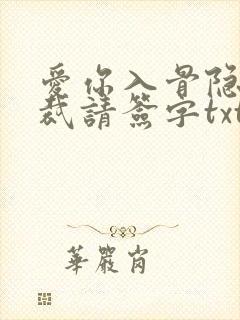 愛你入骨隐
裁請簽字txt
華嚴肖